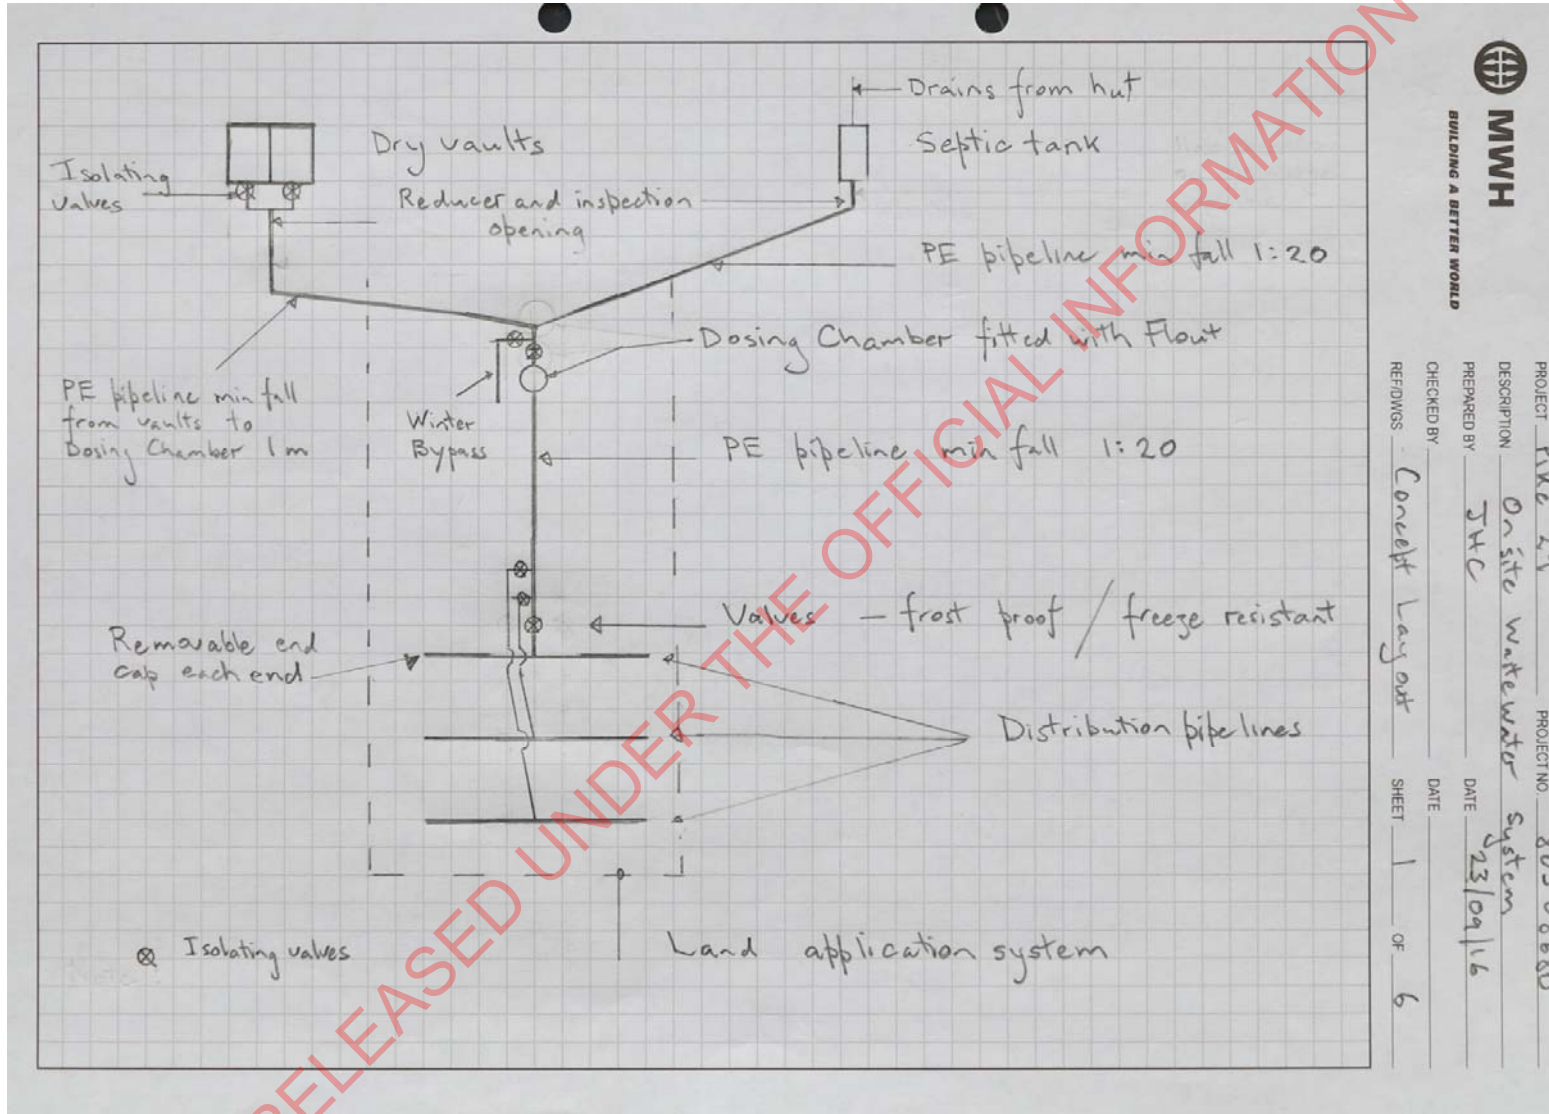 Drains from hut
Dry vaults
Septic tank
Isolating
valves
Reducer and inspection
opening
PE pipeline min fall 1:20
Dosing Chamber fitted with Flout
PE pipeline min fall
from vaults to
Dosing Chamber 1m
Winter
Bypass
PE pipeline min fall 1:20
Valves - frost proof / freeze resistant
Removable end
cap each end
Distribution pipelines
Isolating valves
Land application system
RELEASED UNDER THE OFFICIAL INFORMATION
MWH
BUILDING A BETTER WORLD
PROJECT PROJECT NO.
DESCRIPTION On site Wastewater System
PREPARED BY JHC DATE 23/09/16
CHECKED BY DATE
REF/DWGS Concept Layout SHEET 1 OF 6